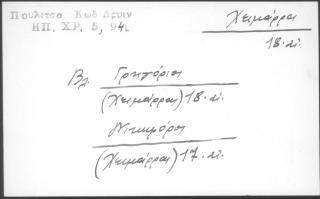 Πουλιτσα Κωδ Δρυιν
ΗΠ. ΧΡ. 5, 94.
Χειμάρρα
18. αἰ.
Βλ. Γρηγόριος
(Χειμάρρας) 18. αἰ.
Νικηφόρος
(Χειμάρρας) 17. αἰ.